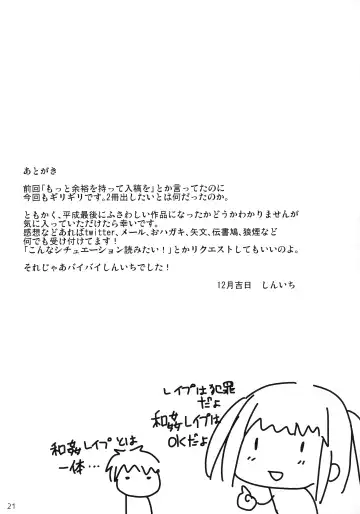 あとがき
前回「もっと余裕を持って入稿を」とか言ってたのに
今回もギリギリです。2冊出したいとは何だったのか。
ともかく、平成最後にふさわしい作品になったかどうかわかりませんが
気に入っていただけたら幸いです。
感想などあればtwitter、メール、おハガキ、矢文、伝書鳩、狼煙など
何でも受け付けてます！
「こんなシチュエーション読みたい！」とかリクエストしてもいいのよ。
それじゃあバイバイしんいちでした！
12月吉日 しんいち
レイプは犯罪
だよ
和姦レイプは
OKだよ
和姦レイプとは
一体…
21